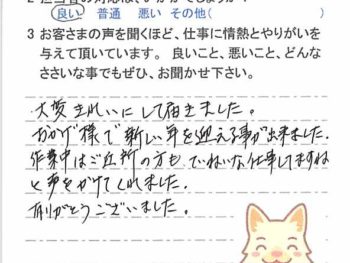 2 担当者の対応は、いかがでしょうか？
良い 普通 悪い その他( )
3 お客さまの声を聞くほど、仕事に情熱とやりがいを
与えて頂いています。 良いこと、悪いこと、どんな
ささいな事でもぜひ、お聞かせ下さい。
大変きれいにして頂きました。
おかげ様で新しい年を迎える事が出来ました。
作業中はご近所の方も、ていねいな仕事してますね
と声をかけてくれました。
ありがとうございました。